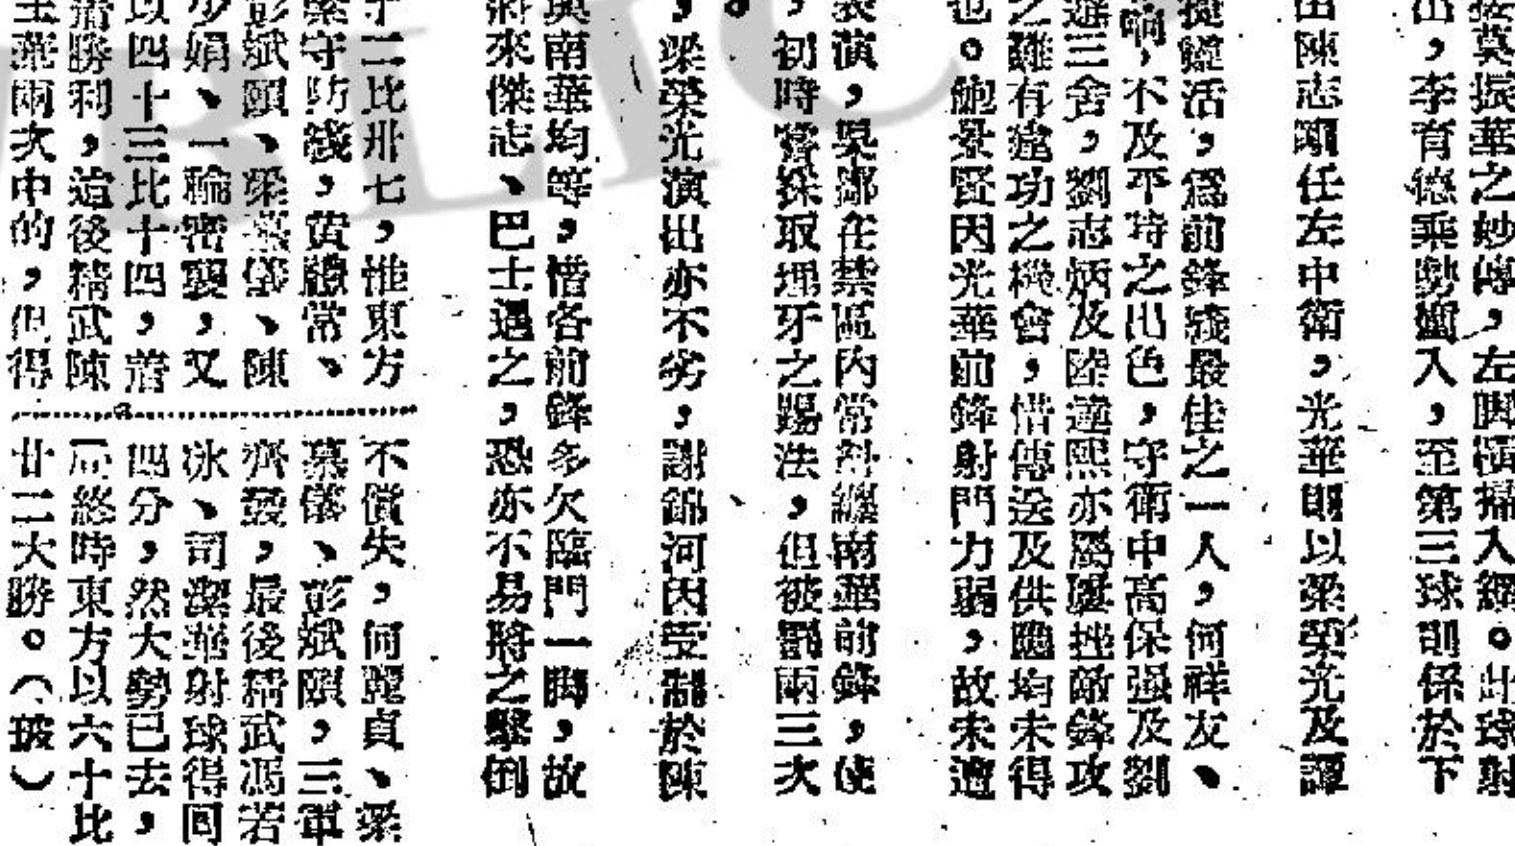 接莫振華之妙傳，左脚橫掃入網。此球射
出，李育德乘勢搶入，至第三球則係於下
由陳志剛任左中衛，光華則以梁榮光及譚
靈活，爲前鋒綫最佳之一人，何祥友、
响，不及平時之出色，守衛中高保强及劉
避三舍，劉志炳及陸達熙亦屬屢挫敵鋒攻
之雖有建功之機會，惜傳送及供應均未得
也。鮑景賢因光華前鋒射門力弱，故未遭
表演，吳鄉在禁區內常糾纏南華前鋒，使
，初時嘗採取埋牙之踢法，但被罰兩三次
，梁榮光演出亦不劣，謝錦河因受制於陳
與南華均等，惜各前鋒多欠臨門一脚，故
將來傑志、巴士遇之，恐亦不易將之擊倒
十二比卅七，惟東方
緊守防綫，黄體常、
彭斌頤、梁慕儀、陳
少娟、一輪密襲，又
以四十三比十四，奮
勝利，這後精武陳
華兩次中的，但得
不償失，何麗貞、梁
慕儀、彭斌頤，三軍
齊發，最後精武馮若
冰、司潔華射球得囘
四分，然大勢已去，
終時東方以六十比
廿二大勝。（玻）